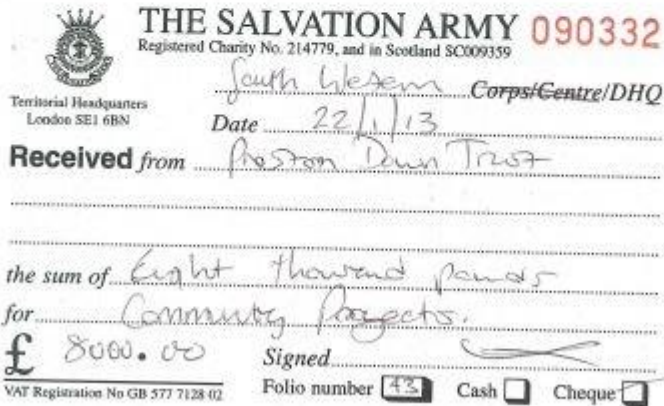 THE SALVATION ARMY 090332
Registered Charity No. 214779, and in Scotland SC009359
Territorial Headquarters
London SE1 6BN
South Western Corps/Centre/DHQ
Date 22/1/13
Received from Preston Down Trust
the sum of Eight thousand pounds
for Community Projects.
£ 8000.00 Signed
VAT Registration No GB 577 7128 02 Folio number 43 Cash Cheque